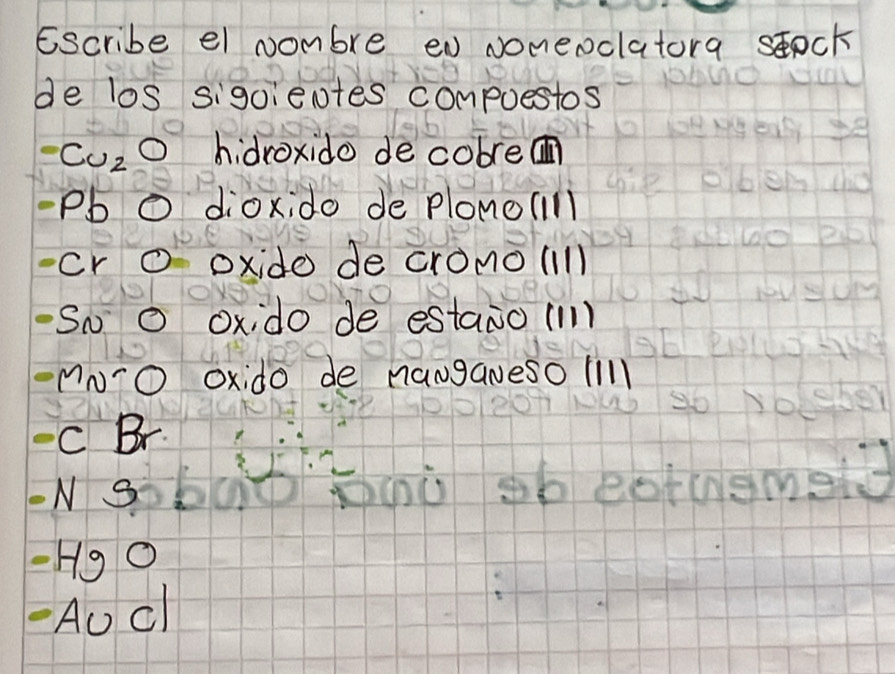 Escribe el nombre en nomenclatura stock
de los siguientes compuestos
- Cu₂ O hidroxido de cobre
- Pb O dioxido de Plomo (II)
- Cr O oxido de cromo (II)
- Sn O oxido de estaño (II)
- Mn - O oxido de manganeso (II)
- C Br
- N S
- Hg O
- Au cl